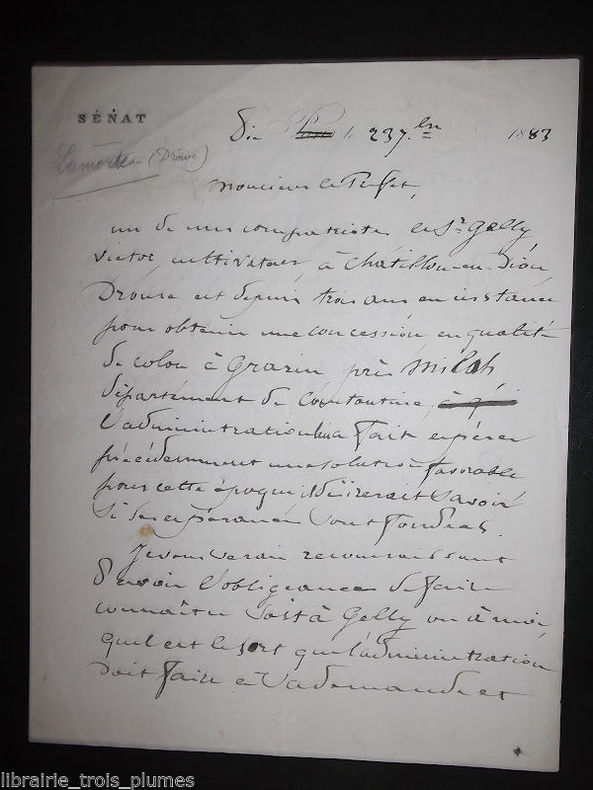 SÉNAT
Die Paris le 23 7.bre 1883
Lamorte (Drôme)
Monsieur le Préfet,
un de mes compatriotes le Sr Gelly
victor cultivateur à Châtillon-en-Diois
Drôme est depuis trois ans en instance
pour obtenir une concession en qualité
de colon à Grarem près Milah
département de Constantine,
l'administration lui a fait espérer
précédemment une solution favorable
pour cette époque, il désirerait savoir
si ses espérances sont fondées.
Je vous serai reconnaissant
d'avoir l'obligeance de faire
connaître soit à Gelly ou à moi,
quel est le sort que l'administration
doit faire à sa demande et
librairie_trois_plumes